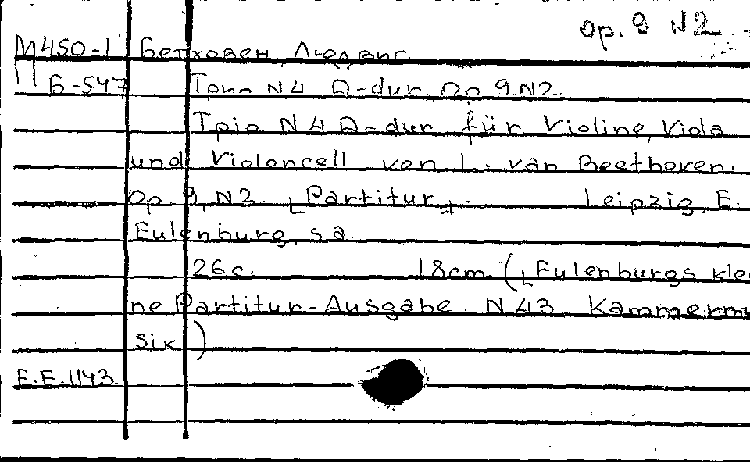 Op. 9 N2
М450-1 Бетховен, Людвиг
Б-547 Трио N4 D-dur Op 9 N2.
Трio N4 D-dur für Violine, Viola
und Violoncell von L. van Beethoven.
Op 9, N2. [Partitur]. Leipzig, E.
Eulenburg, s.a.
26 c. 18cm. ([Eulenburgs klei
ne Partitur-Ausgabe. N 43. Kammermu
sik)
E.E. 1143